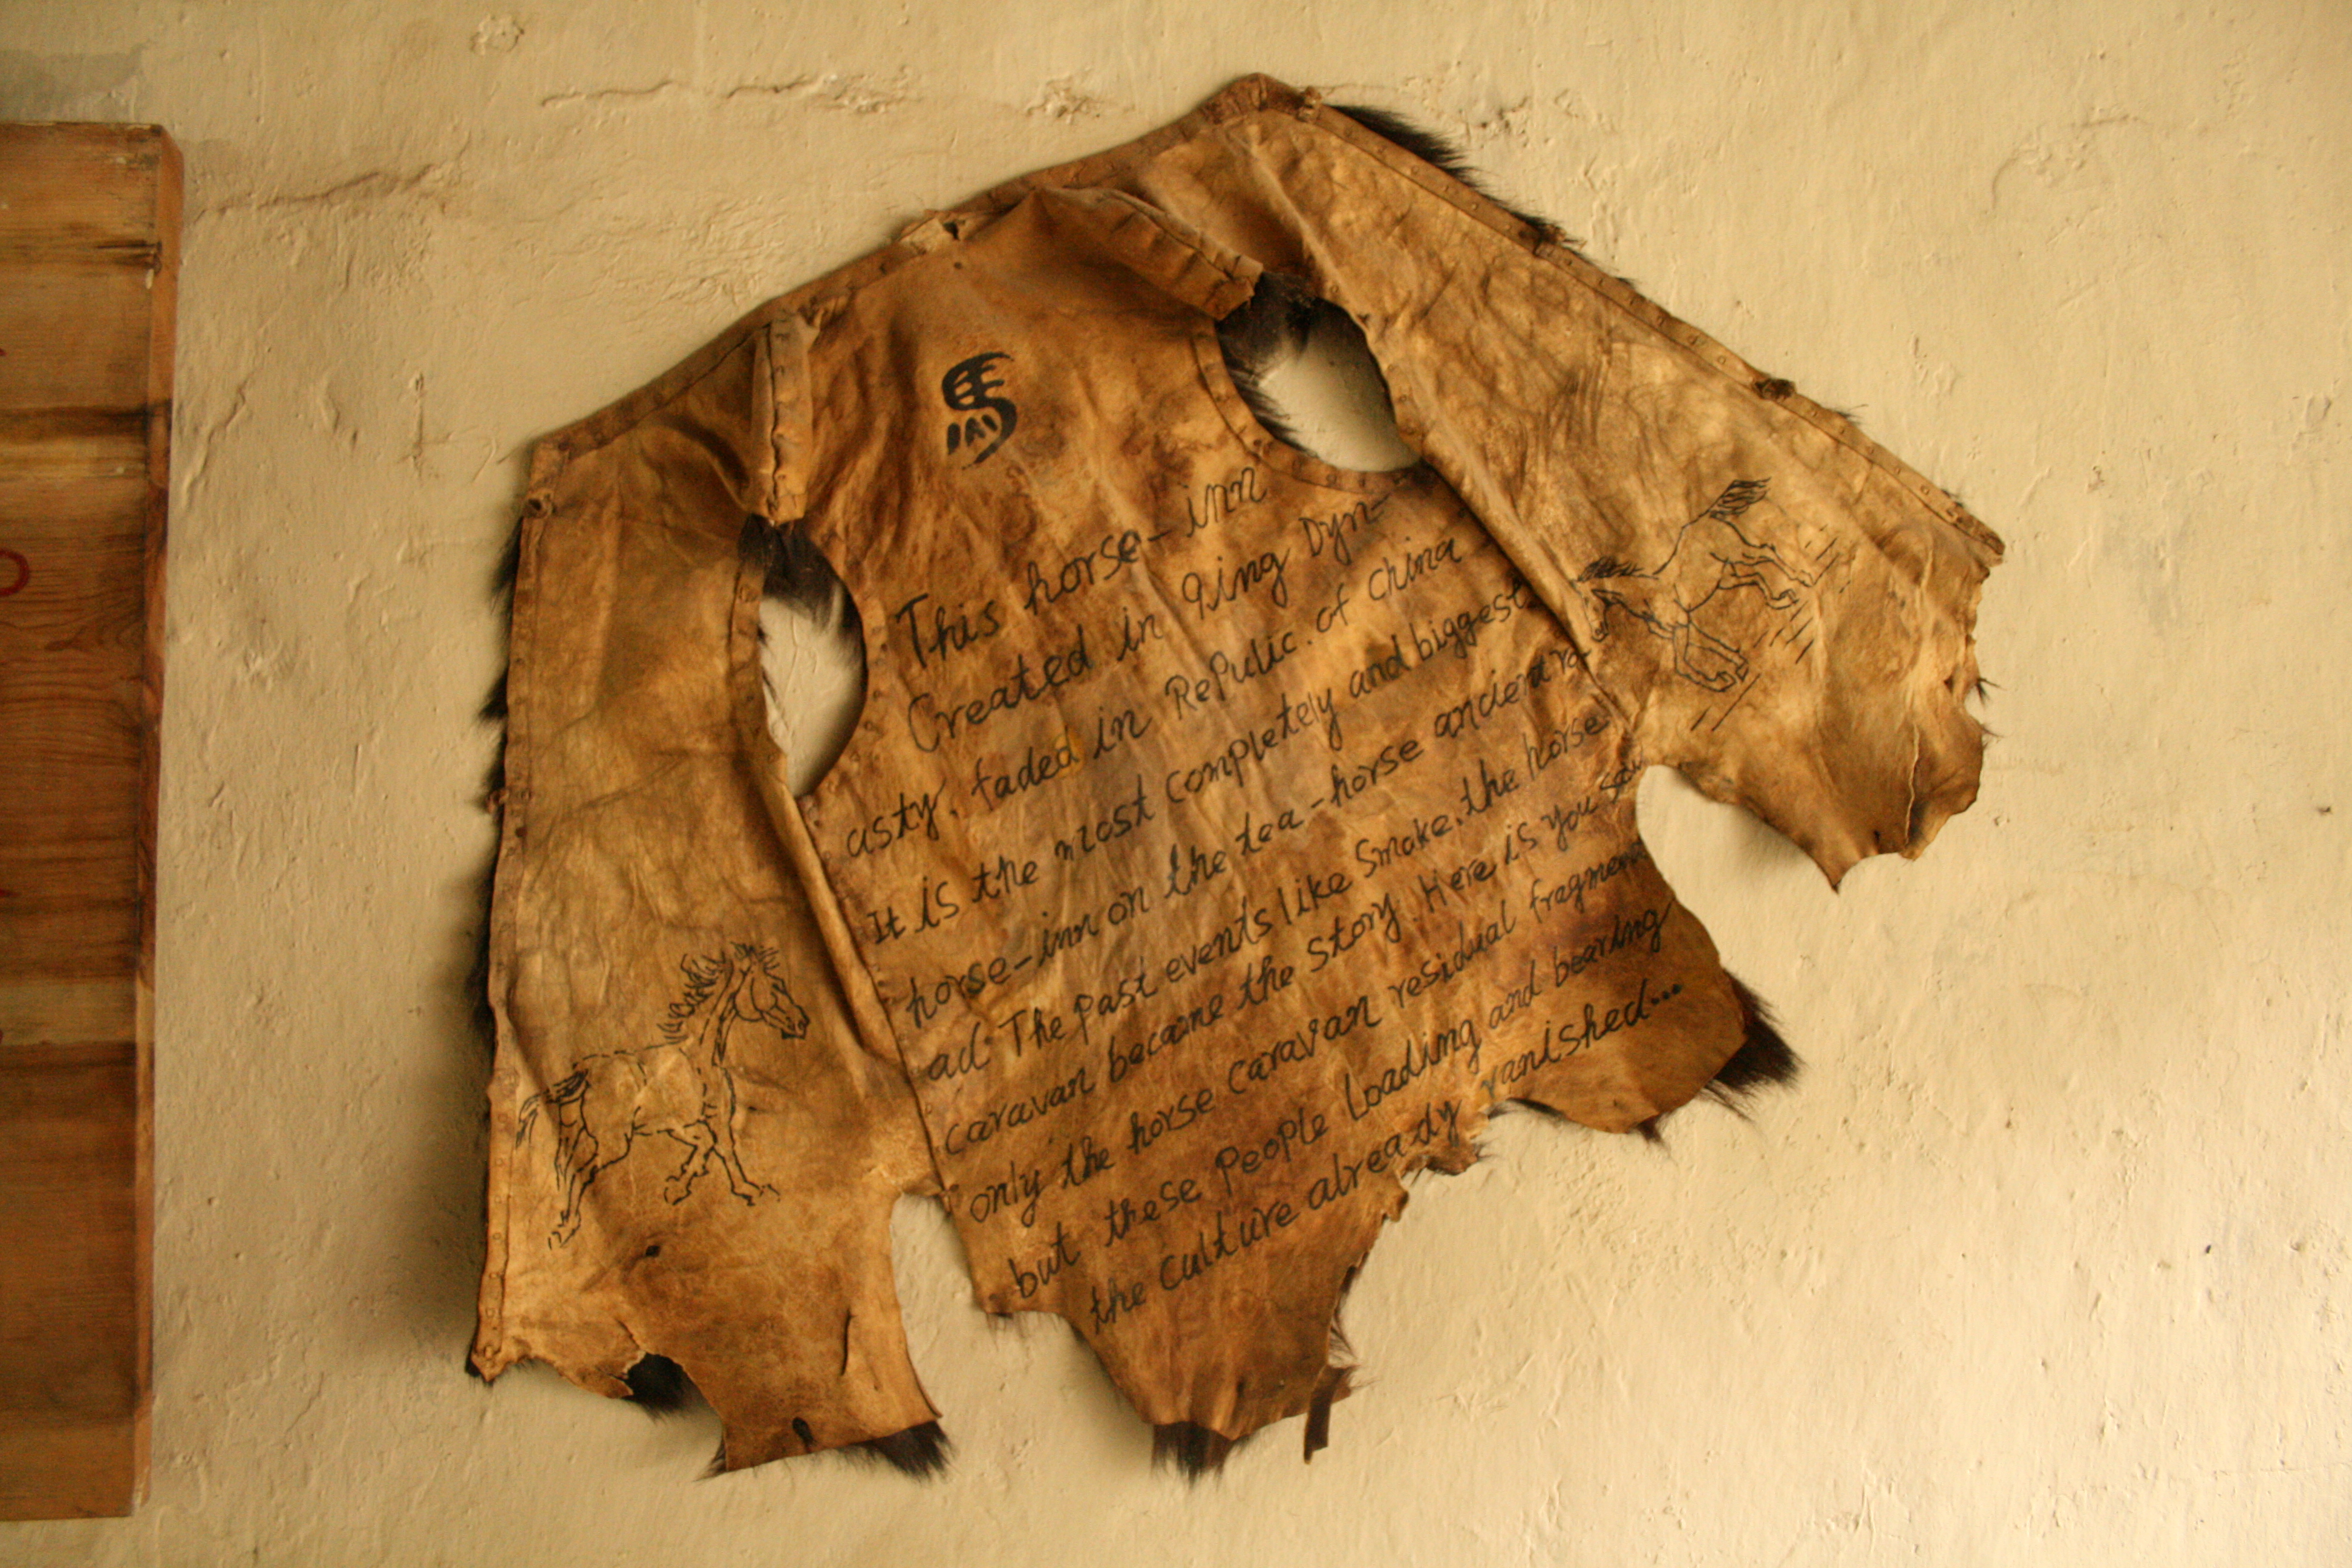 This horse-inn
Created in qing Dyn-
asty, faded in RePulic. of china
It is the most completely and biggest
horse-inn on the tea-horse ancient ro-
ad. The past events like smoke, the horse
caravan became the story. Here is you saw
only the horse caravan residual fragment
but these people loading and bearing
the culture already vanished...